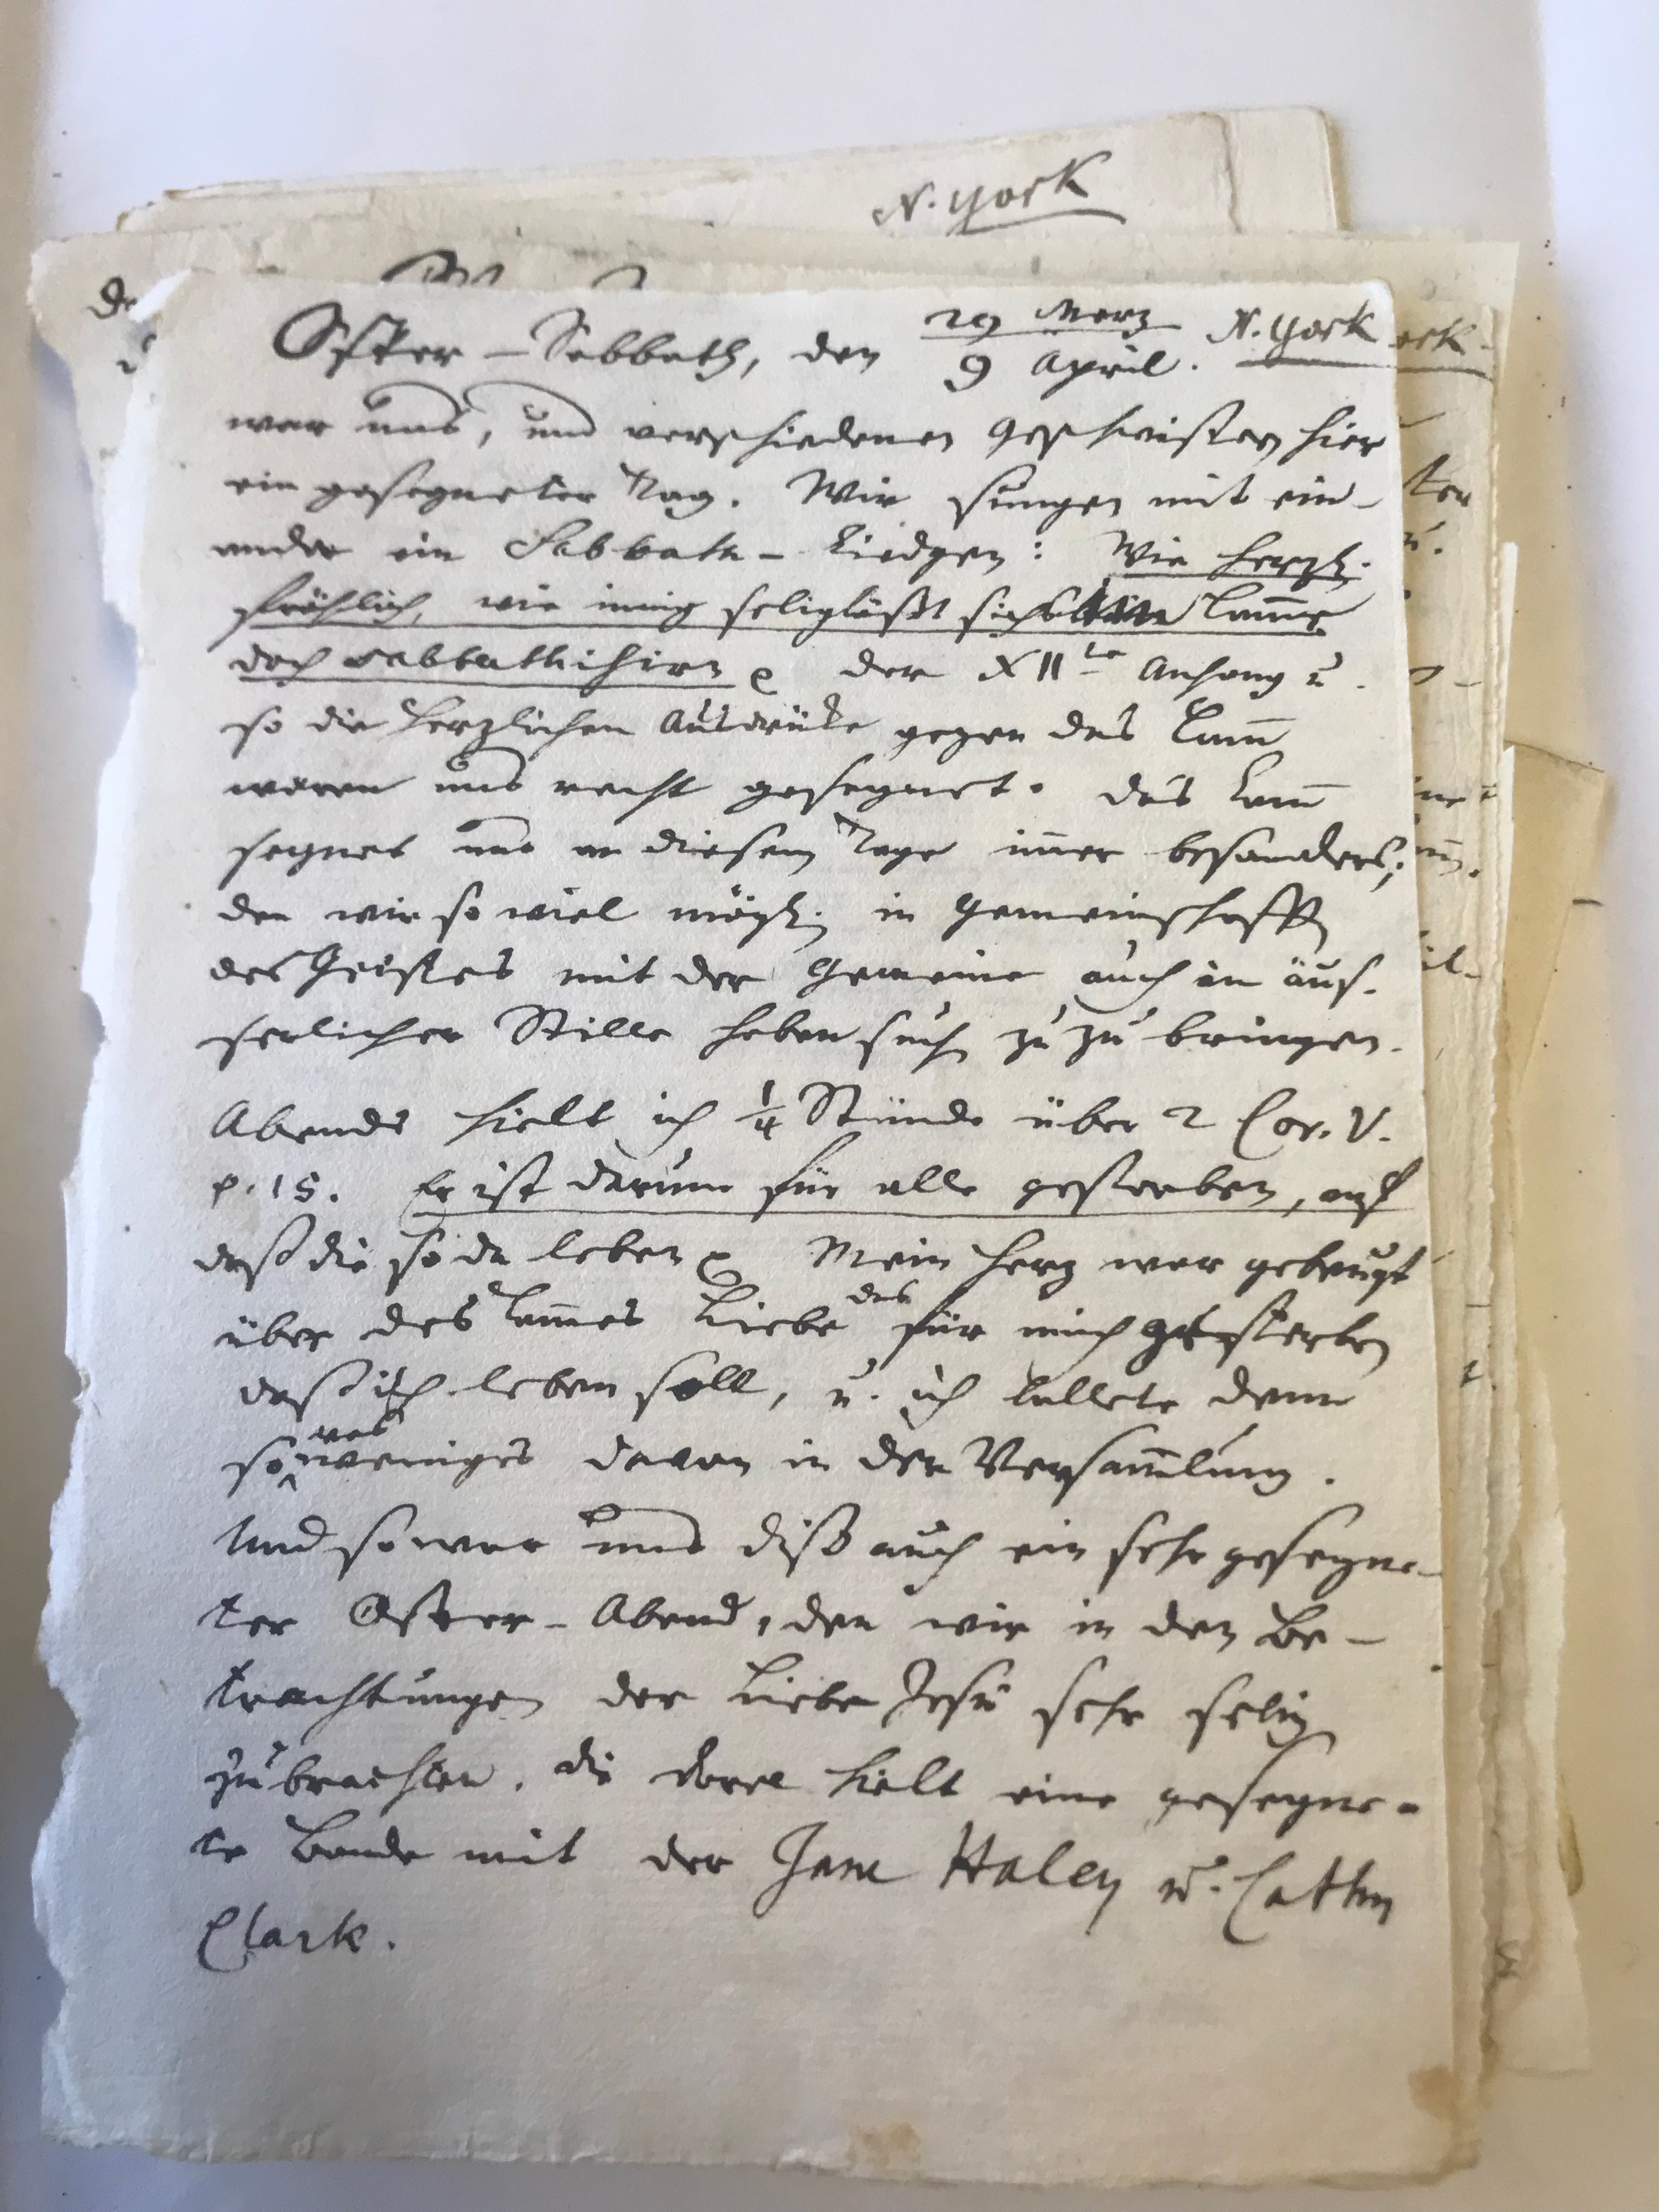 N. York
Oster-Sabbath, den 29 Merz N. York
9 April.
war uns, und verschiedenen Geschwistern hier
ein gesegneter Tag. Wir sungen mit ein-
ander ein Sabbath-Liedgen: Wie herzl.
fröhlich, wie innig selig läßt sichs Lamm
doch sabbathisirn der XIIte Anhang u.
so die herzlichen Ausdrüke gegen das Lamm
waren uns recht gesegnet. Das Lamm
segnet uns an diesem Tage immer besonders;
den wir so viel mögl. in Gemeinschafft
des Geistes mit der Gemeine auch in äus-
serlicher Stille haben such zu zu bringen.
Abends hielt ich 1/4 Stunde über 2 Cor. V.
p. 15. Er ist darum für alle gestorben, auf
daß die so da leben Mein Herz war gebeugt
über des Lammes Liebe das für mich gestorben
daß ich leben soll, u. ich lallete denn
so was weniges davon in der Versammlung.
Und so war uns diß auch ein sehr gesegne-
ter Oster-Abend, den wir in den Be-
trachtungen der Liebe Jesu sehr selig
zubrachten. die hielt eine gesegne-
te Bande mit der Jane Haley u. Cathn
Clark.